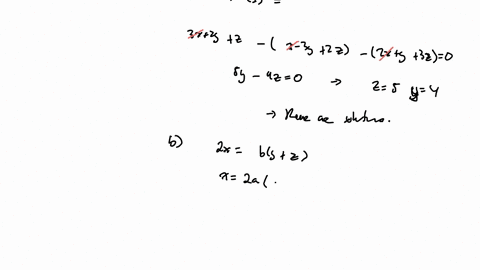 3x+2y +z - ( x-3y+2z) - (2x+y +3z)=0
5y - 4z=0 → z=5 y=4
→ There are solutions.
b) 2x = b(y+z)
x = 2a (